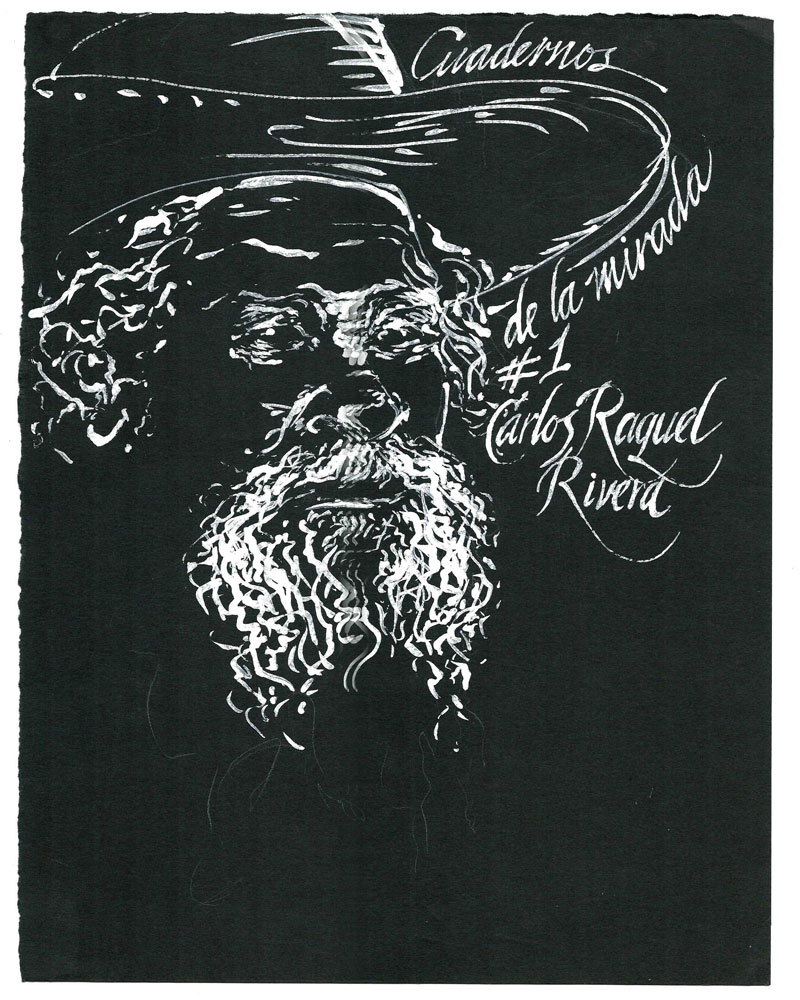 Cuadernos
de la mirada
#1
Carlos Raquel
Rivera